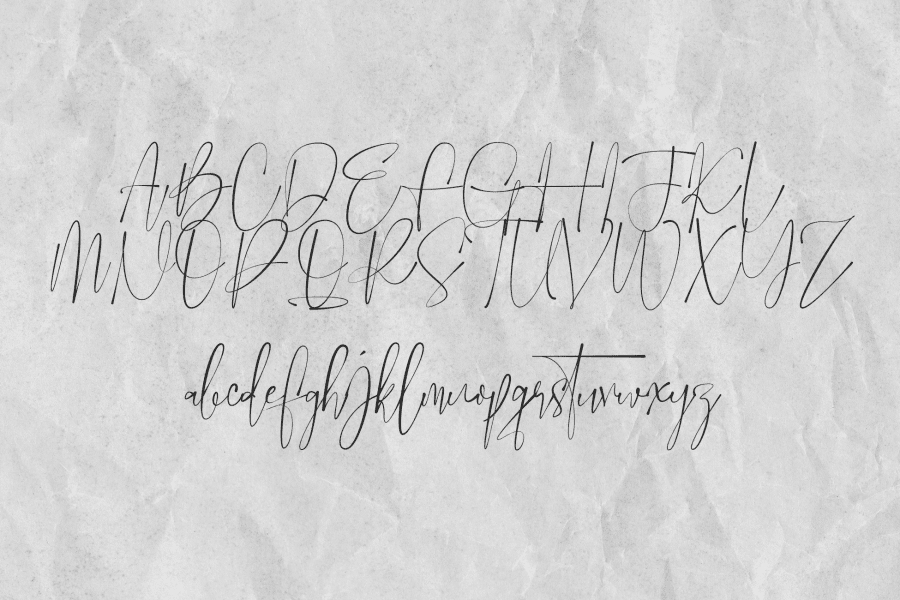 ABCDEFGHIJKL
MNOPQRSTUVWXYZ
abcdefghijklmnopqrstuvwxyz